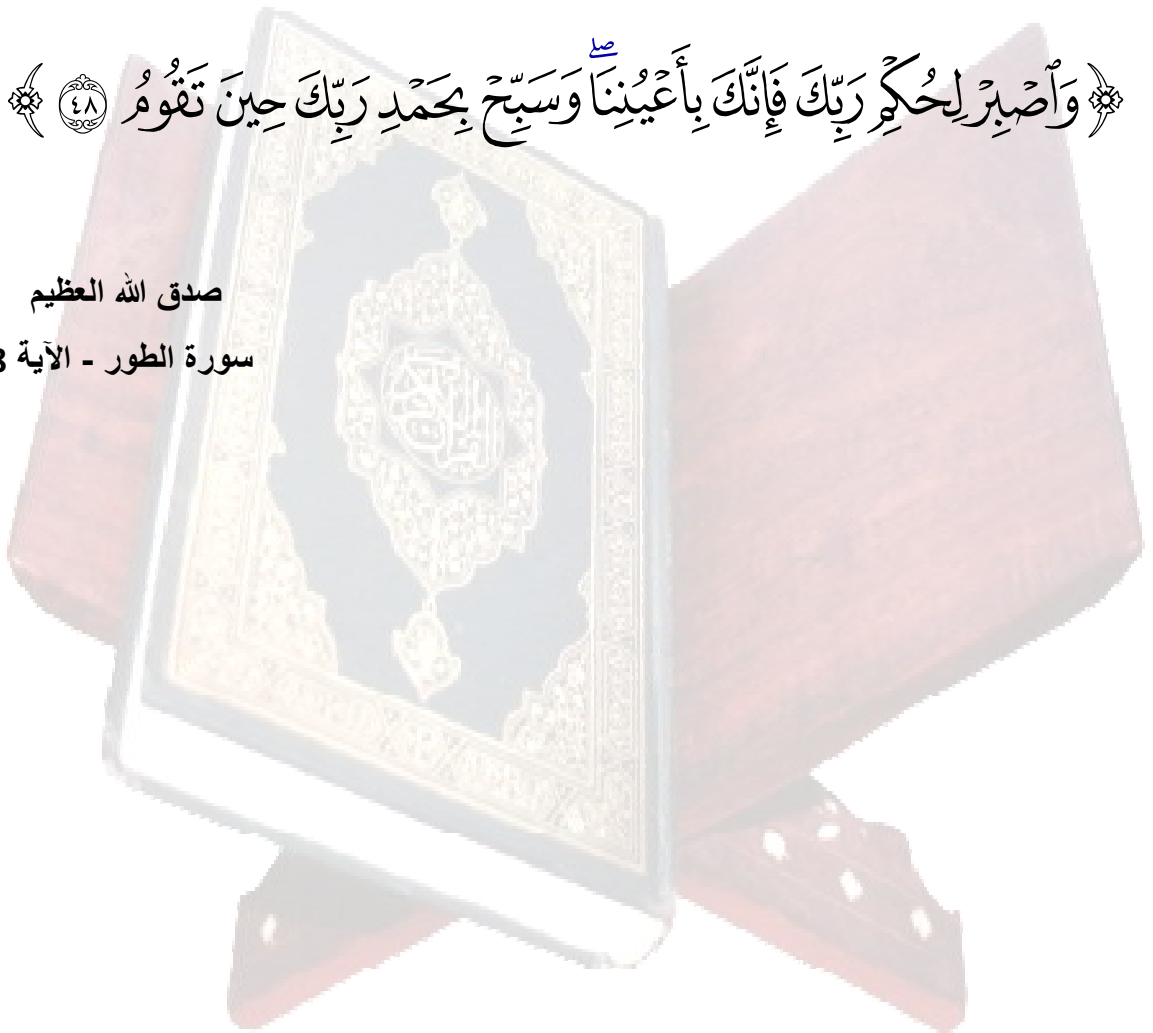 ﴿ وَٱصۡبِرۡ لِحُكۡمِ رَبِّكَ فَإِنَّكَ بِأَعۡيُنِنَاۖ وَسَبِّحۡ بِحَمۡدِ رَبِّكَ حِينَ تَقُومُ ٤٨ ﴾
صدق الله العظيم
سورة الطور - الآية 8